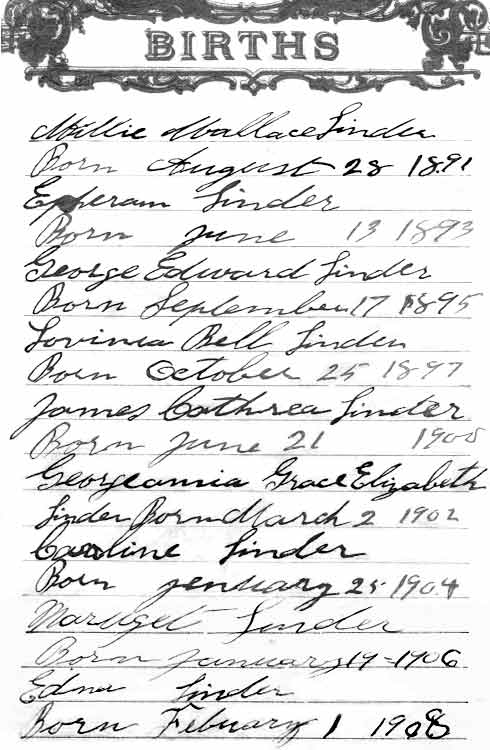 BIRTHS
Willie Wallace Linder
Born August 28 1891
Epheram Linder
Born June 13 1893
George Edward Linder
Born September 17 1895
Lovinia Bell Linder
Born October 25 1897
James Cathrea Linder
Born June 21 1900
Georgeannia Grace Elizabeth
Linder Born March 2 1902
Caroline Linder
Born January 25 1904
Marget Linder
Born January 19-1906
Edna Linder
Born Febuary 1 1908